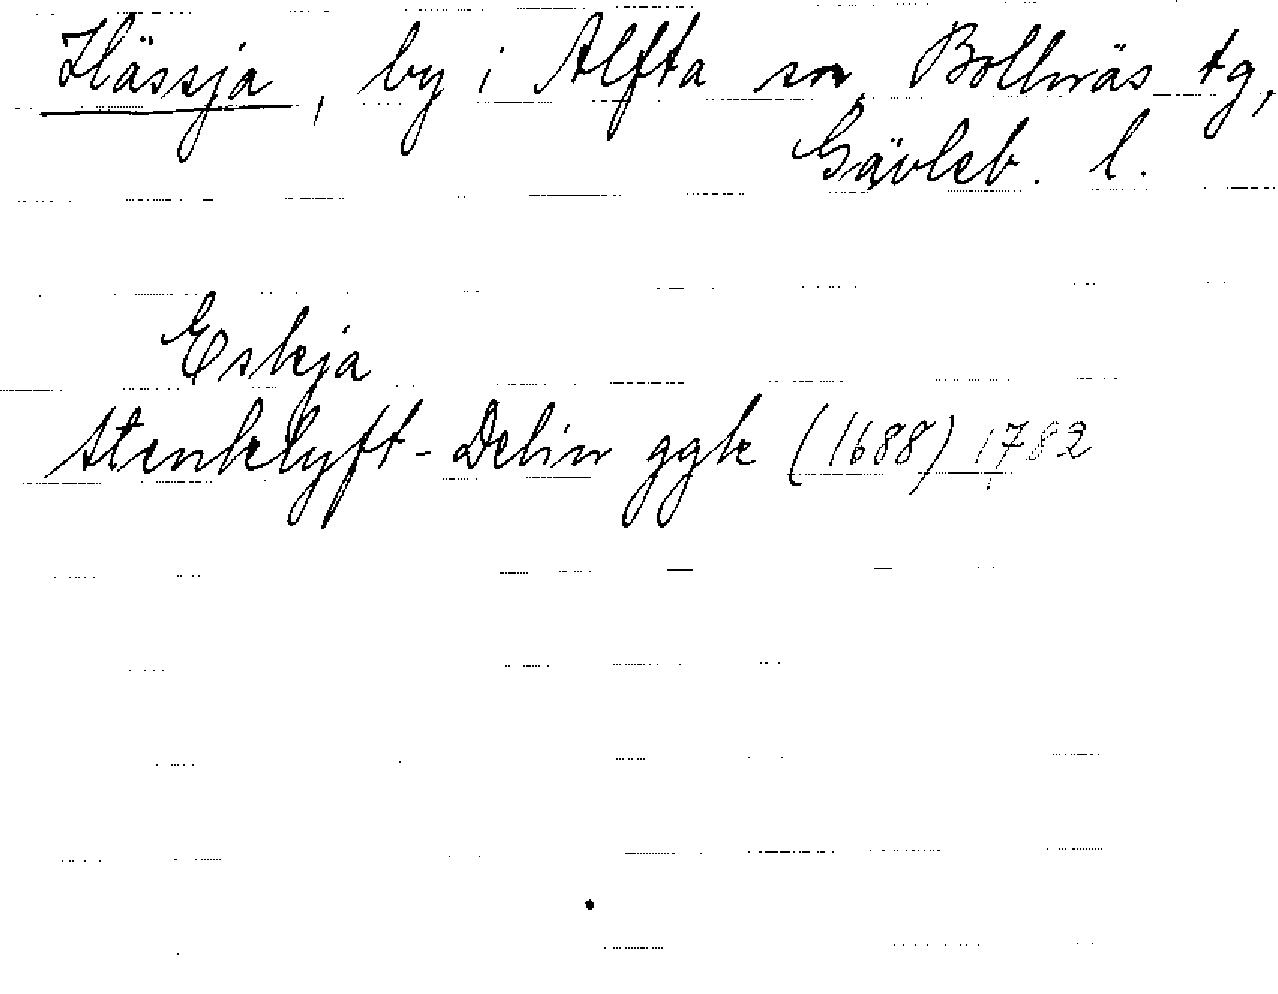 Hässja, by i Alfta sn, Bollnäs tg,
Gävleb. l.
Eskja
Stenklyft-Delin ggk (1688) 1782